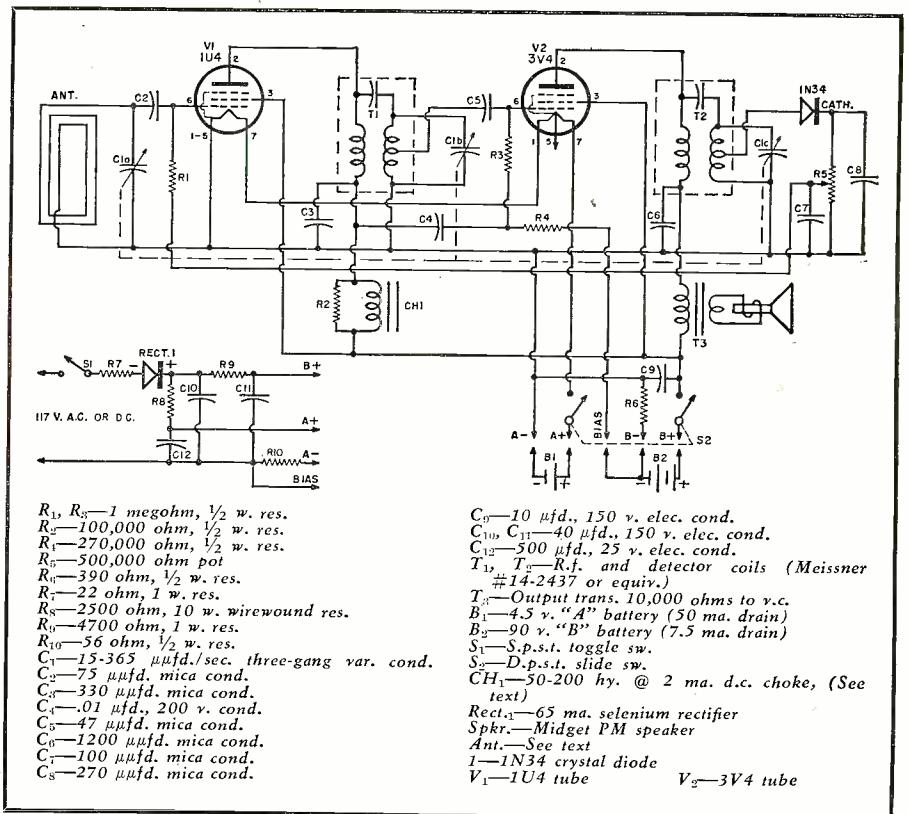 V1
1U4
V2
3V4
ANT.
C2
6
2
3
1-5
7
T1
C1a
R1
C3
C1b
C5
6
2
3
1
5
7
R3
C4
R4
T2
1N34
CATH.
C1c
R5
C8
C6
C7
R2
CH1
T3
C9
R6
A-
A+
BIAS
B-
B+
S2
B1
B2
-
+
-
+
S1
R7
-
RECT.1
+
R9
B+
R8
C10
C11
117 V. A.C. OR D.C.
A+
C12
R10
A-
BIAS
R₁, R₃—1 megohm, ½ w. res.
R₂—100,000 ohm, ½ w. res.
R₄—270,000 ohm, ½ w. res.
R₅—500,000 ohm pot
R₆—390 ohm, ½ w. res.
R₇—22 ohm, 1 w. res.
R₈—2500 ohm, 10 w. wirewound res.
R₉—4700 ohm, 1 w. res.
R₁₀—56 ohm, ½ w. res.
C₁—15-365 μμfd./sec. three-gang var. cond.
C₂—75 μμfd. mica cond.
C₃—330 μμfd. mica cond.
C₄—.01 μfd., 200 v. cond.
C₅—47 μμfd. mica cond.
C₆—1200 μμfd. mica cond.
C₇—100 μμfd. mica cond.
C₈—270 μμfd. mica cond.
C₉—10 μfd., 150 v. elec. cond.
C₁₀, C₁₁—40 μfd., 150 v. elec. cond.
C₁₂—500 μfd., 25 v. elec. cond.
T₁, T₂—R.f. and detector coils (Meissner
#14-2437 or equiv.)
T₃—Output trans. 10,000 ohms to v.c.
B₁—4.5 v. "A" battery (50 ma. drain)
B₂—90 v. "B" battery (7.5 ma. drain)
S₁—S.p.s.t. toggle sw.
S₂—D.p.s.t. slide sw.
CH₁—50-200 hy. @ 2 ma. d.c. choke, (See
text)
Rect.₁—65 ma. selenium rectifier
Spkr.—Midget PM speaker
Ant.—See text
1—1N34 crystal diode
V₁—1U4 tube V₂—3V4 tube